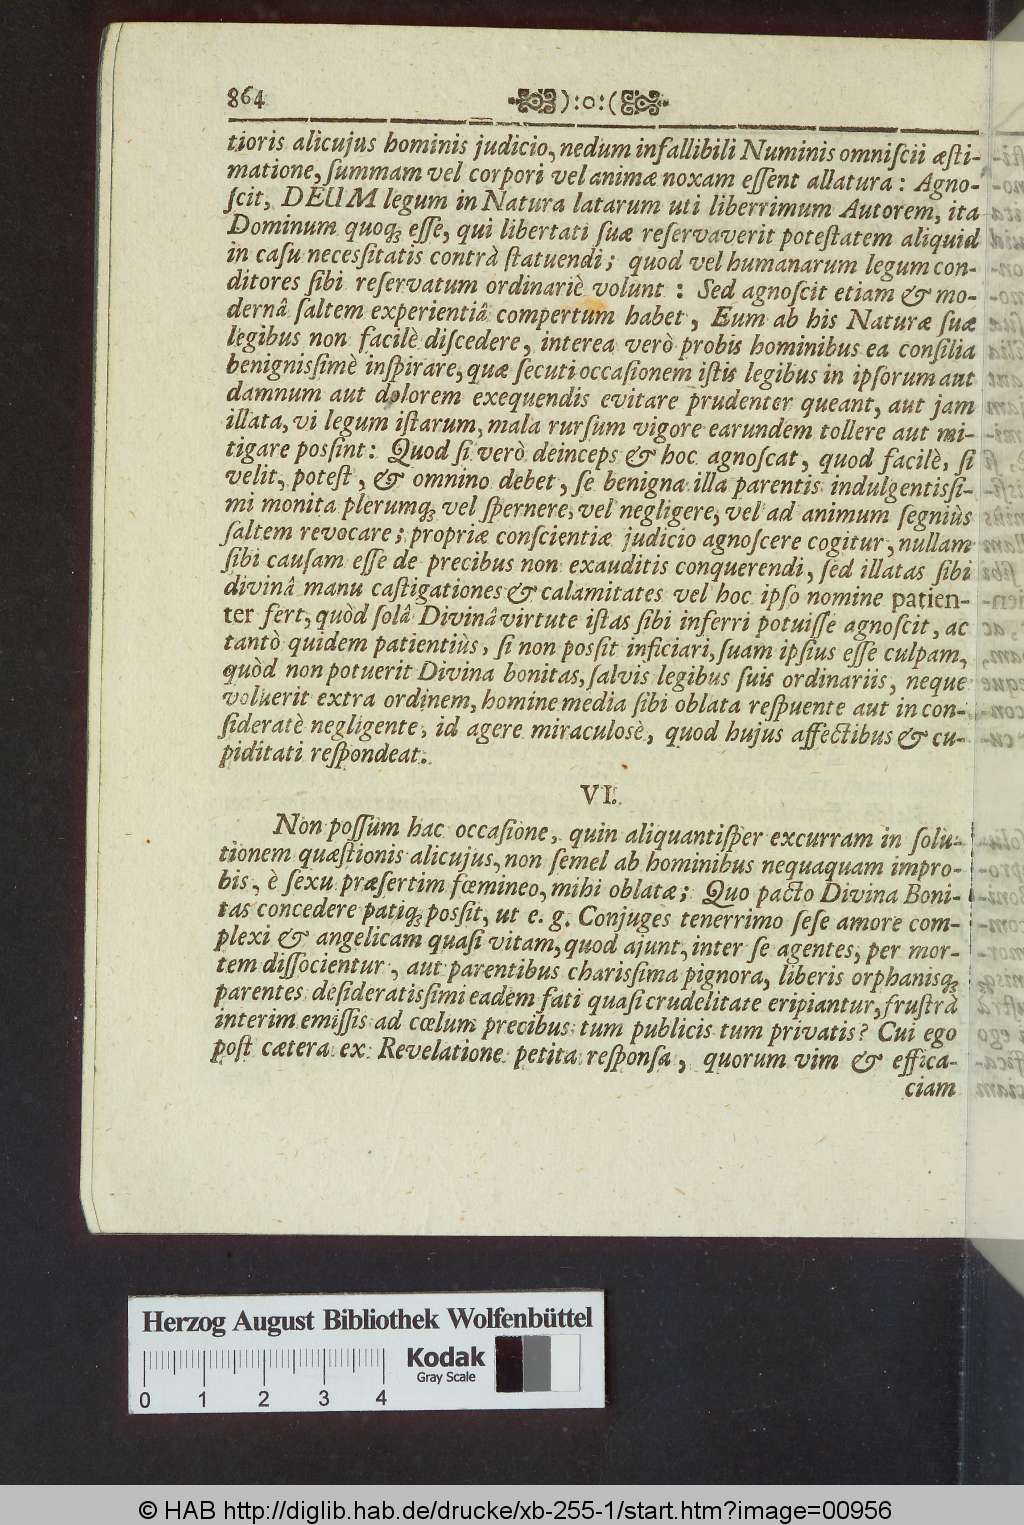 864 ):o:(
tioris alicujus hominis judicio, nedum infallibili Numinis omniſcii æſti-
matione, ſummam vel corpori vel animæ noxam eſſent allatura: Agno-
ſcit, DEUM legum in Natura latarum uti liberrimum Autorem, ita
Dominum quoqꝫ eſſe, qui libertati ſuæ reſervaverit poteſtatem aliquid
in caſu neceſſitatis contrà ſtatuendi; quod vel humanarum legum con-
ditores ſibi reſervatum ordinariè volunt: Sed agnoſcit etiam & mo-
dernâ ſaltem experientiâ compertum habet, Eum ab his Naturæ ſuæ
legibus non facilè diſcedere, interea verò probis hominibus ea conſilia
benigniſſimè inſpirare, quæ ſecuti occaſionem iſtis legibus in ipſorum aut
damnum aut dolorem exequendis evitare prudenter queant, aut jam
illata, vi legum iſtarum, mala rurſum vigore earundem tollere aut mi-
tigare poſſint: Quod ſi verò deinceps & hoc agnoſcat, quod facilè, ſi
velit, poteſt, & omnino debet, ſe benigna illa parentis indulgentiſſi-
mi monita plerumqꝫ vel ſpernere, vel negligere, vel ad animum ſegniùs
ſaltem revocare; propriæ conſcientiæ judicio agnoſcere cogitur, nullam
ſibi cauſam eſſe de precibus non exauditis conquerendi, ſed illatas ſibi
divinâ manu caſtigationes & calamitates vel hoc ipſo nomine patien-
ter fert, quòd ſolâ Divinâ virtute iſtas ſibi inferri potuiſſe agnoſcit, ac
tantò quidem patientiùs, ſi non poſſit inficiari, ſuam ipſius eſſe culpam,
quòd non potuerit Divina bonitas, ſalvis legibus ſuis ordinariis, neque
voluerit extra ordinem, homine media ſibi oblata reſpuente aut incon-
ſideratè negligente, id agere miraculosè, quod hujus affectibus & cu-
piditati reſpondeat.
VI.
Non poſſum hac occaſione, quin aliquantiſper excurram in ſolu-
tionem quæſtionis alicujus, non ſemel ab hominibus nequaquam impro-
bis, è ſexu præſertim fœmineo, mihi oblatæ; Quo pacto Divina Boni-
tas concedere patiqꝫ poſſit, ut e. g. Conjuges tenerrimo ſeſe amore com-
plexi & angelicam quaſi vitam, quod ajunt, inter ſe agentes, per mor-
tem diſſocientur, aut parentibus chariſſima pignora, liberis orphanisqꝫ
parentes deſideratiſſimi eadem fati quaſi crudelitate eripiantur, fruſtrà
interim emiſſis ad cœlum precibus tum publicis tum privatis? Cui ego
poſt cætera ex Revelatione petita reſponſa, quorum vim & effica-
ciam
Herzog August Bibliothek Wolfenbüttel
Kodak
Gray Scale
0 1 2 3 4
© HAB http://diglib.hab.de/drucke/xb-255-1/start.htm?image=00956